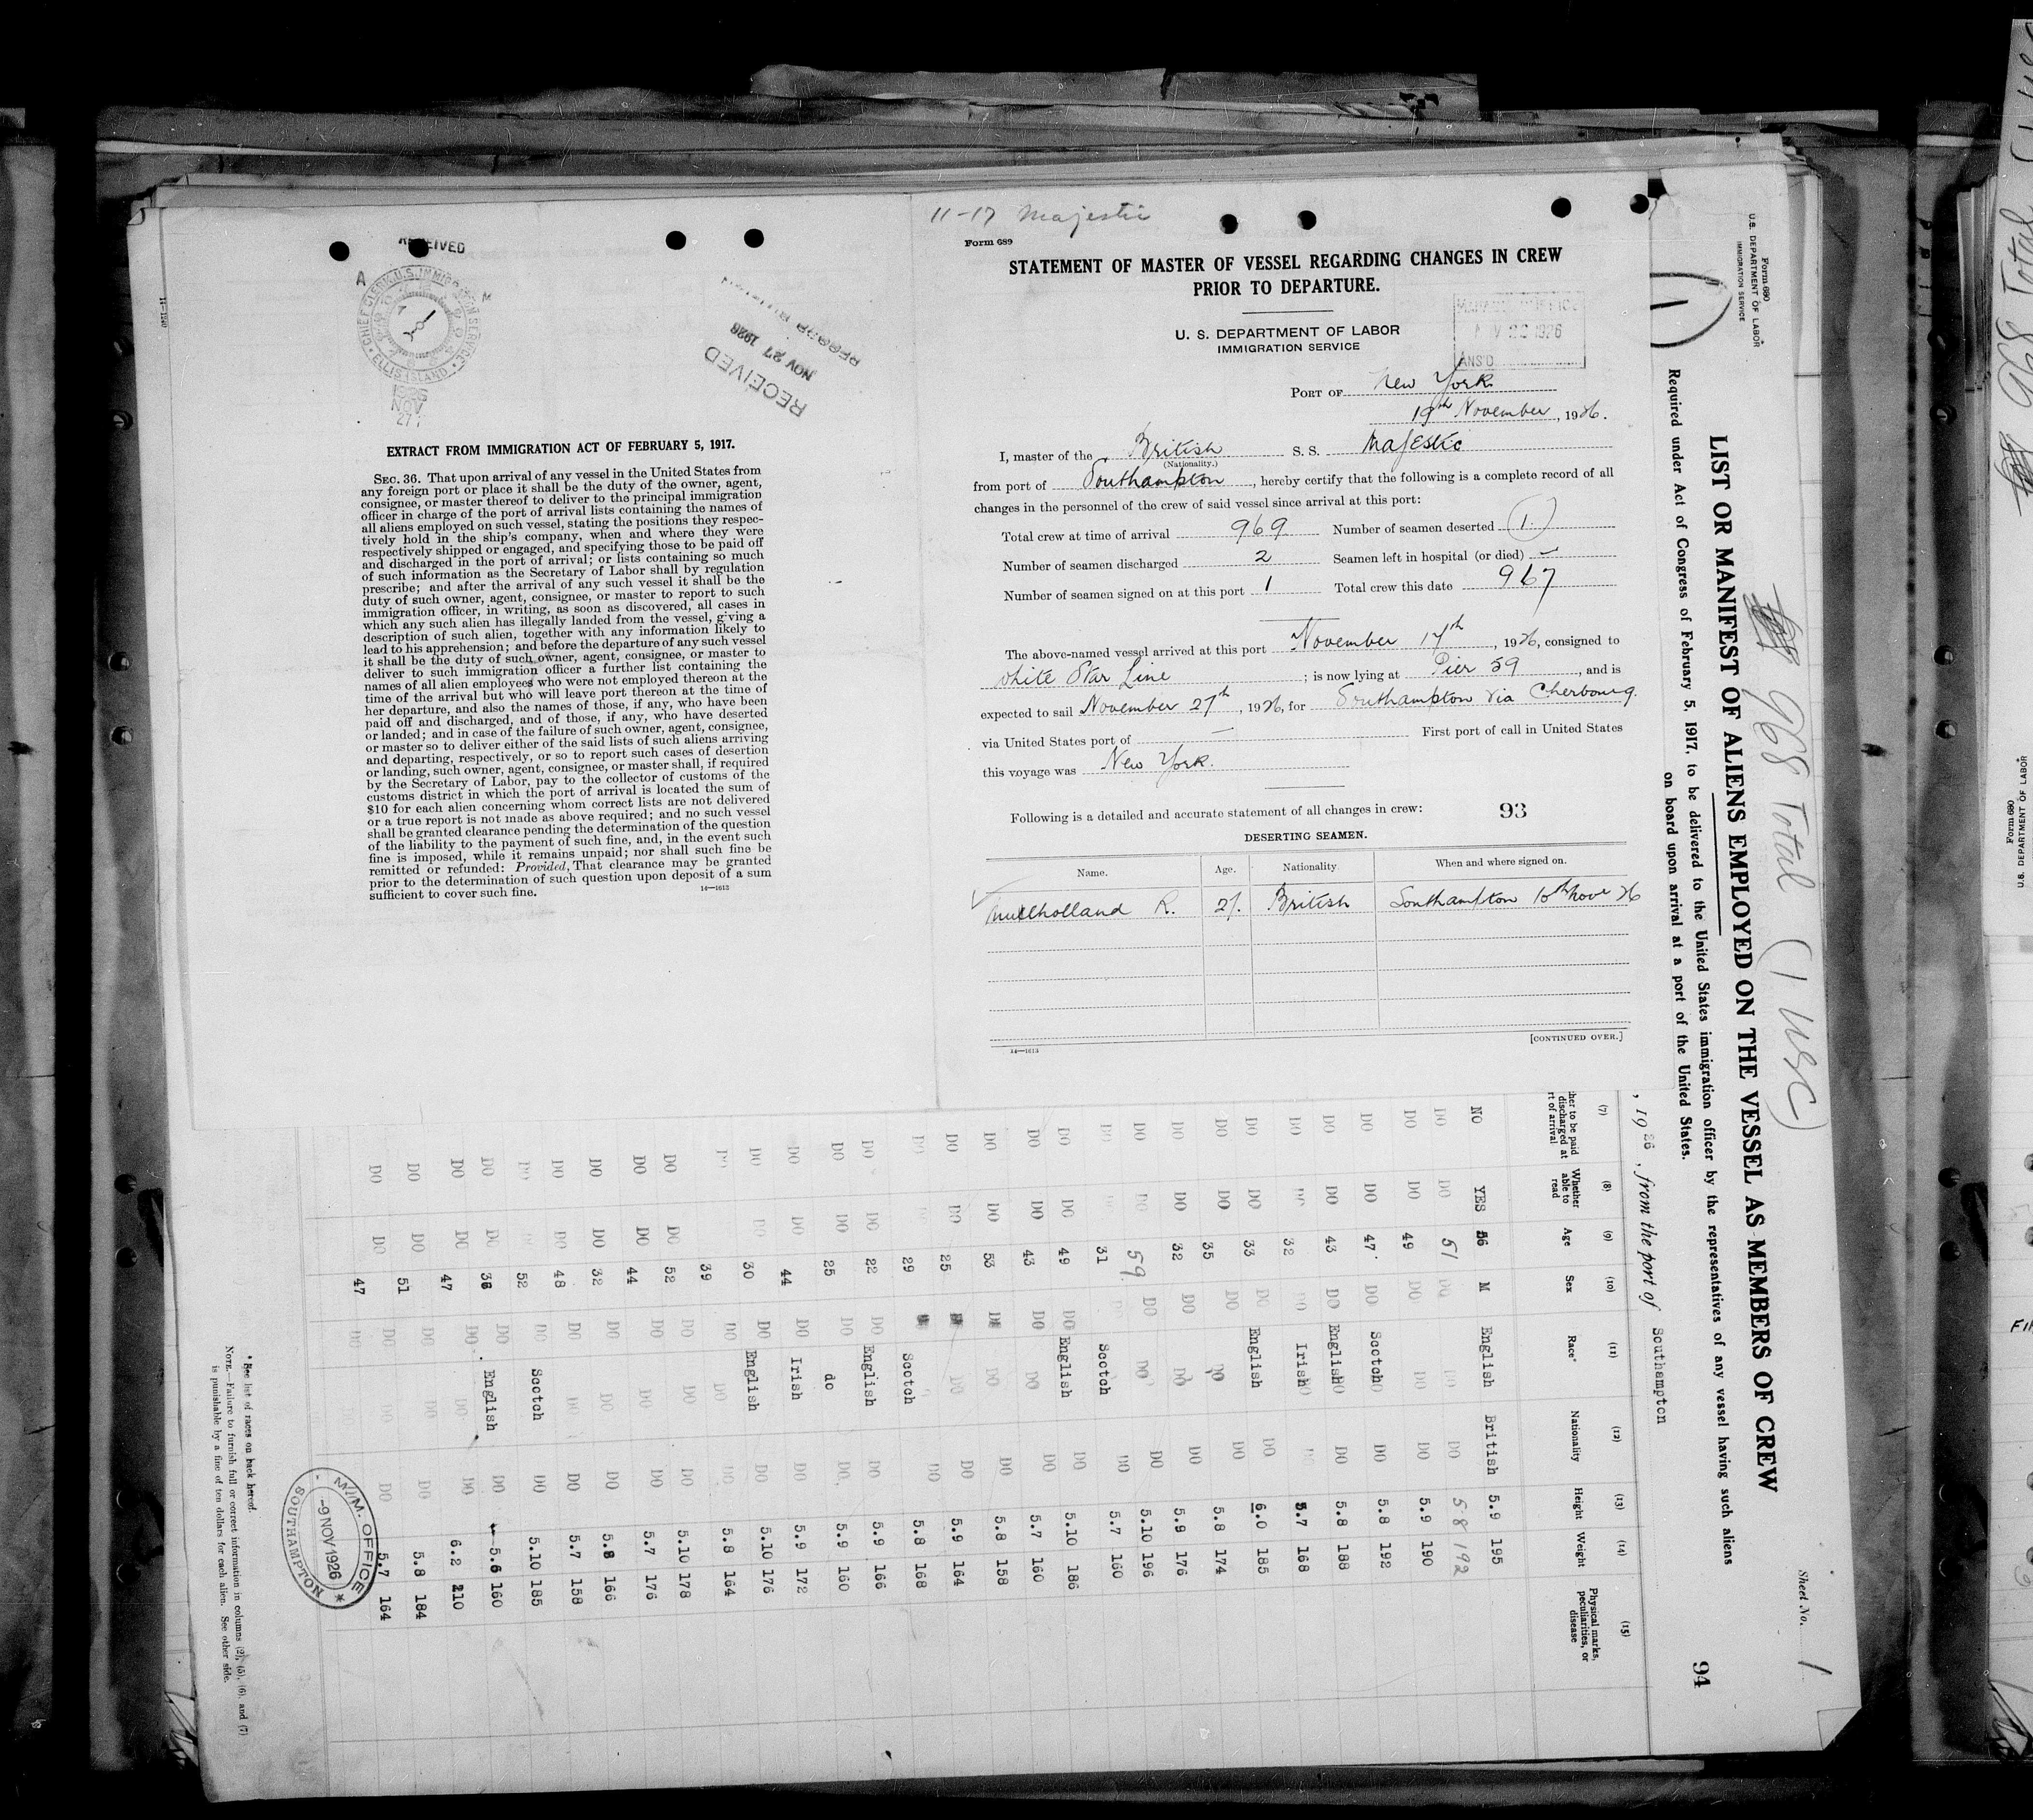 RECEIVED
CHIEF CLERK U.S. IMMIGRATION SERVICE
ELLIS ISLAND
NOV
27
RECEIVED
NOV 27 1926
14-1240
EXTRACT FROM IMMIGRATION ACT OF FEBRUARY 5, 1917.
SEC. 36. That upon arrival of any vessel in the United States from
any foreign port or place it shall be the duty of the owner, agent,
consignee, or master thereof to deliver to the principal immigration
officer in charge of the port of arrival lists containing the names of
all aliens employed on such vessel, stating the positions they respec-
tively hold in the ship's company, when and where they were
respectively shipped or engaged, and specifying those to be paid off
and discharged in the port of arrival; or lists containing so much
of such information as the Secretary of Labor shall by regulation
prescribe; and after the arrival of any such vessel it shall be the
duty of such owner, agent, consignee, or master to report to such
immigration officer, in writing, as soon as discovered, all cases in
which any such alien has illegally landed from the vessel, giving a
description of such alien, together with any information likely to
lead to his apprehension; and before the departure of any such vessel
it shall be the duty of such owner, agent, consignee, or master to
deliver to such immigration officer a further list containing the
names of all alien employees who were not employed thereon at the
time of the arrival but who will leave port thereon at the time of
her departure, and also the names of those, if any, who have been
paid off and discharged, and of those, if any, who have deserted
or landed; and in case of the failure of such owner, agent, consignee,
or master so to deliver either of the said lists of such aliens arriving
and departing, respectively, or so to report such cases of desertion
or landing, such owner, agent, consignee, or master shall, if required
by the Secretary of Labor, pay to the collector of customs of the
customs district in which the port of arrival is located the sum of
$10 for each alien concerning whom correct lists are not delivered
or a true report is not made as above required; and no such vessel
shall be granted clearance pending the determination of the question
of the liability to the payment of such fine, and, in the event such
fine is imposed, while it remains unpaid; nor shall such fine be
remitted or refunded: Provided, That clearance may be granted
prior to the determination of such question upon deposit of a sum
sufficient to cover such fine.
14—1613
11-17 Majestic
Form 689
STATEMENT OF MASTER OF VESSEL REGARDING CHANGES IN CREW
PRIOR TO DEPARTURE.
U. S. DEPARTMENT OF LABOR
IMMIGRATION SERVICE
1926
ANS'D
PORT OF New York
19th November, 1926.
I, master of the British S. S. Majestic
(Nationality.)
from port of Southampton, hereby certify that the following is a complete record of all
changes in the personnel of the crew of said vessel since arrival at this port:
Total crew at time of arrival 969 Number of seamen deserted 1.
Number of seamen discharged 2 Seamen left in hospital (or died) —
Number of seamen signed on at this port 1 Total crew this date 967
The above-named vessel arrived at this port November 17th, 1926, consigned to
White Star Line; is now lying at Pier 59, and is
expected to sail November 27th, 1926, for Southampton via Cherbourg.
via United States port of — First port of call in United States
this voyage was New York.
Following is a detailed and accurate statement of all changes in crew: 93
DESERTING SEAMEN.
Name. Age. Nationality When and where signed on.
Mulholland R. 21. British Southampton 10th Nov 26
14—1613
[CONTINUED OVER.]
Form 680
U. S. DEPARTMENT OF LABOR
IMMIGRATION SERVICE
1
968 Total (1 USC)
Sheet No. 1
94
LIST OR MANIFEST OF ALIENS EMPLOYED ON THE VESSEL AS MEMBERS OF CREW
Required under Act of Congress of February 5, 1917, to be delivered to the United States immigration officer by the representatives of any vessel having such aliens
on board upon arrival at a port of the United States.
, 1926, from the port of Southampton
(7) (8) (9) (10) (11) (12) (13) (14) (15)
her to be paid discharged at rt of arrival Whether able to read Age Sex Race* Nationality Height Weight Physical marks, peculiarities, or disease
NO YES 56 M English British 5.9 195
DO DO 51 DO DO DO 5 8 192
DO DO 49 DO DO DO 5.9 190
DO DO 47 DO Scotch DO 5.8 192
DO DO 43 DO English DO 5.8 188
DO DO 32 DO Irish DO 5.7 168
DO DO 33 DO English DO 6.0 185
DO DO 35 DO DO DO 5.8 174
DO DO 32 DO DO DO 5.9 176
DO DO 59 DO DO DO 5.10 196
DO 31 DO Scotch DO 5.7 160
DO DO 49 DO English DO 5.10 186
DO DO 43 DO DO DO 5.7 160
DO DO 53 DO DO DO 5.8 158
DO DO 25 DO DO 5.9 164
DO 29 Scotch DO 5.8 168
DO DO 22 DO English DO 5.9 166
DO DO 25 DO do DO 5.9 160
DO DO 44 DO Irish DO 5.9 172
DO DO 30 DO English DO 5.10 176
DO 39 DO DO DO 5.8 164
DO DO 52 DO DO DO 5.10 178
DO DO 44 DO DO DO 5.7 176
DO DO 32 DO DO DO 5.8 166
DO DO 48 DO DO DO 5.7 158
DO 52 DO Scotch DO 5.10 185
DO DO 38 DO English DO 5.6 160
DO DO 47 DO DO DO 6.2 210
DO DO 51 DO DO DO 5.8 184
DO DO 47 DO DO DO 5.7 164
* See list of races on back hereof.
NOTE.—Failure to furnish full or correct information in columns (2), (5), (6), and (7)
is punishable by a fine of ten dollars for each alien. See other side.
M/M. OFFICE
-9 NOV 1926
SOUTHAMPTON
968 Total
Form 680
U. S. DEPARTMENT OF LABOR